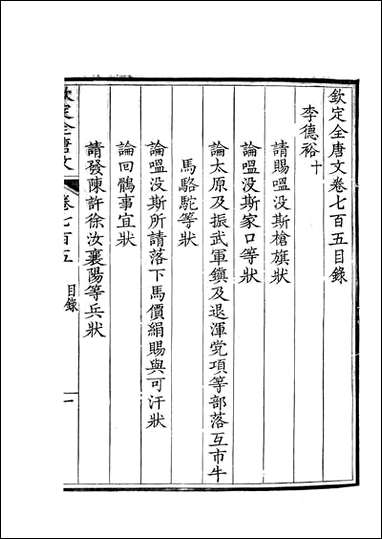 欽定全唐文卷七百五目錄
李德裕十
請賜嗢没斯槍旗狀
論嗢没斯家口等狀
論太原及振武軍鎮及退渾党項等部落互市牛
馬駱駝等狀
論嗢没斯所請落下馬價絹賜與可汗狀
論回鶻事宜狀
請發陳許徐汝襄陽等兵狀
欽定全唐文 卷七百五 目錄 一